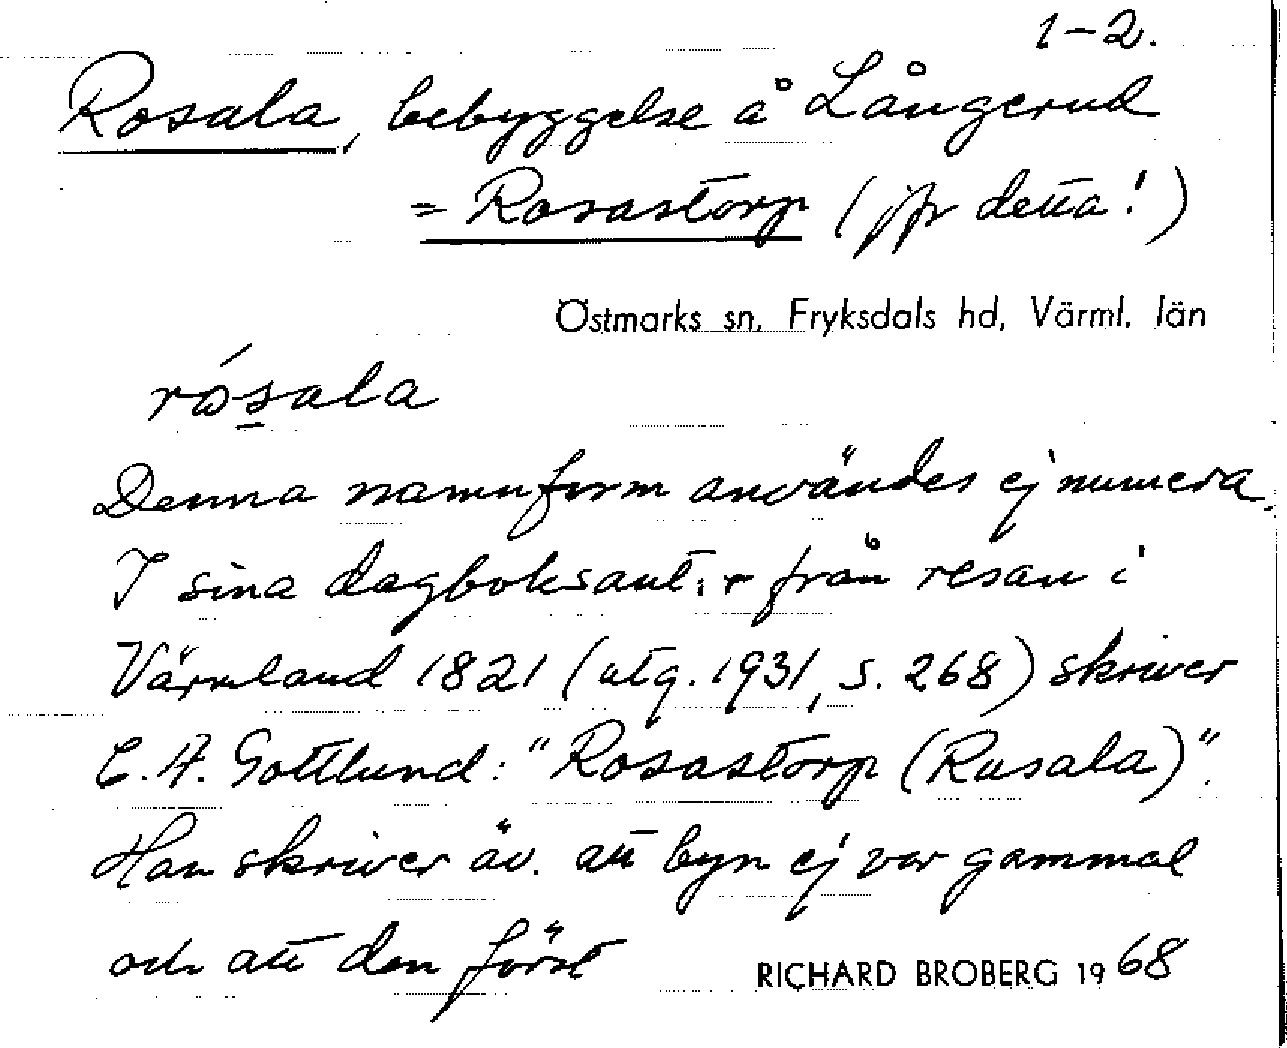 1-2.
Rosala, bebyggelse å Långerud
= Rosastorp (jfr detta!)
Östmarks sn, Fryksdals hd, Värml. län
rósala
Denna namnform användes ej numera.
I sina dagboksant:r från resan i
Värmland 1821 (utg. 1931, s. 268) skriver
C. A. Gottlund: "Rosastorp (Rusala)".
Han skriver äv. att byn ej var gammal
och att den först
RICHARD BROBERG 1968